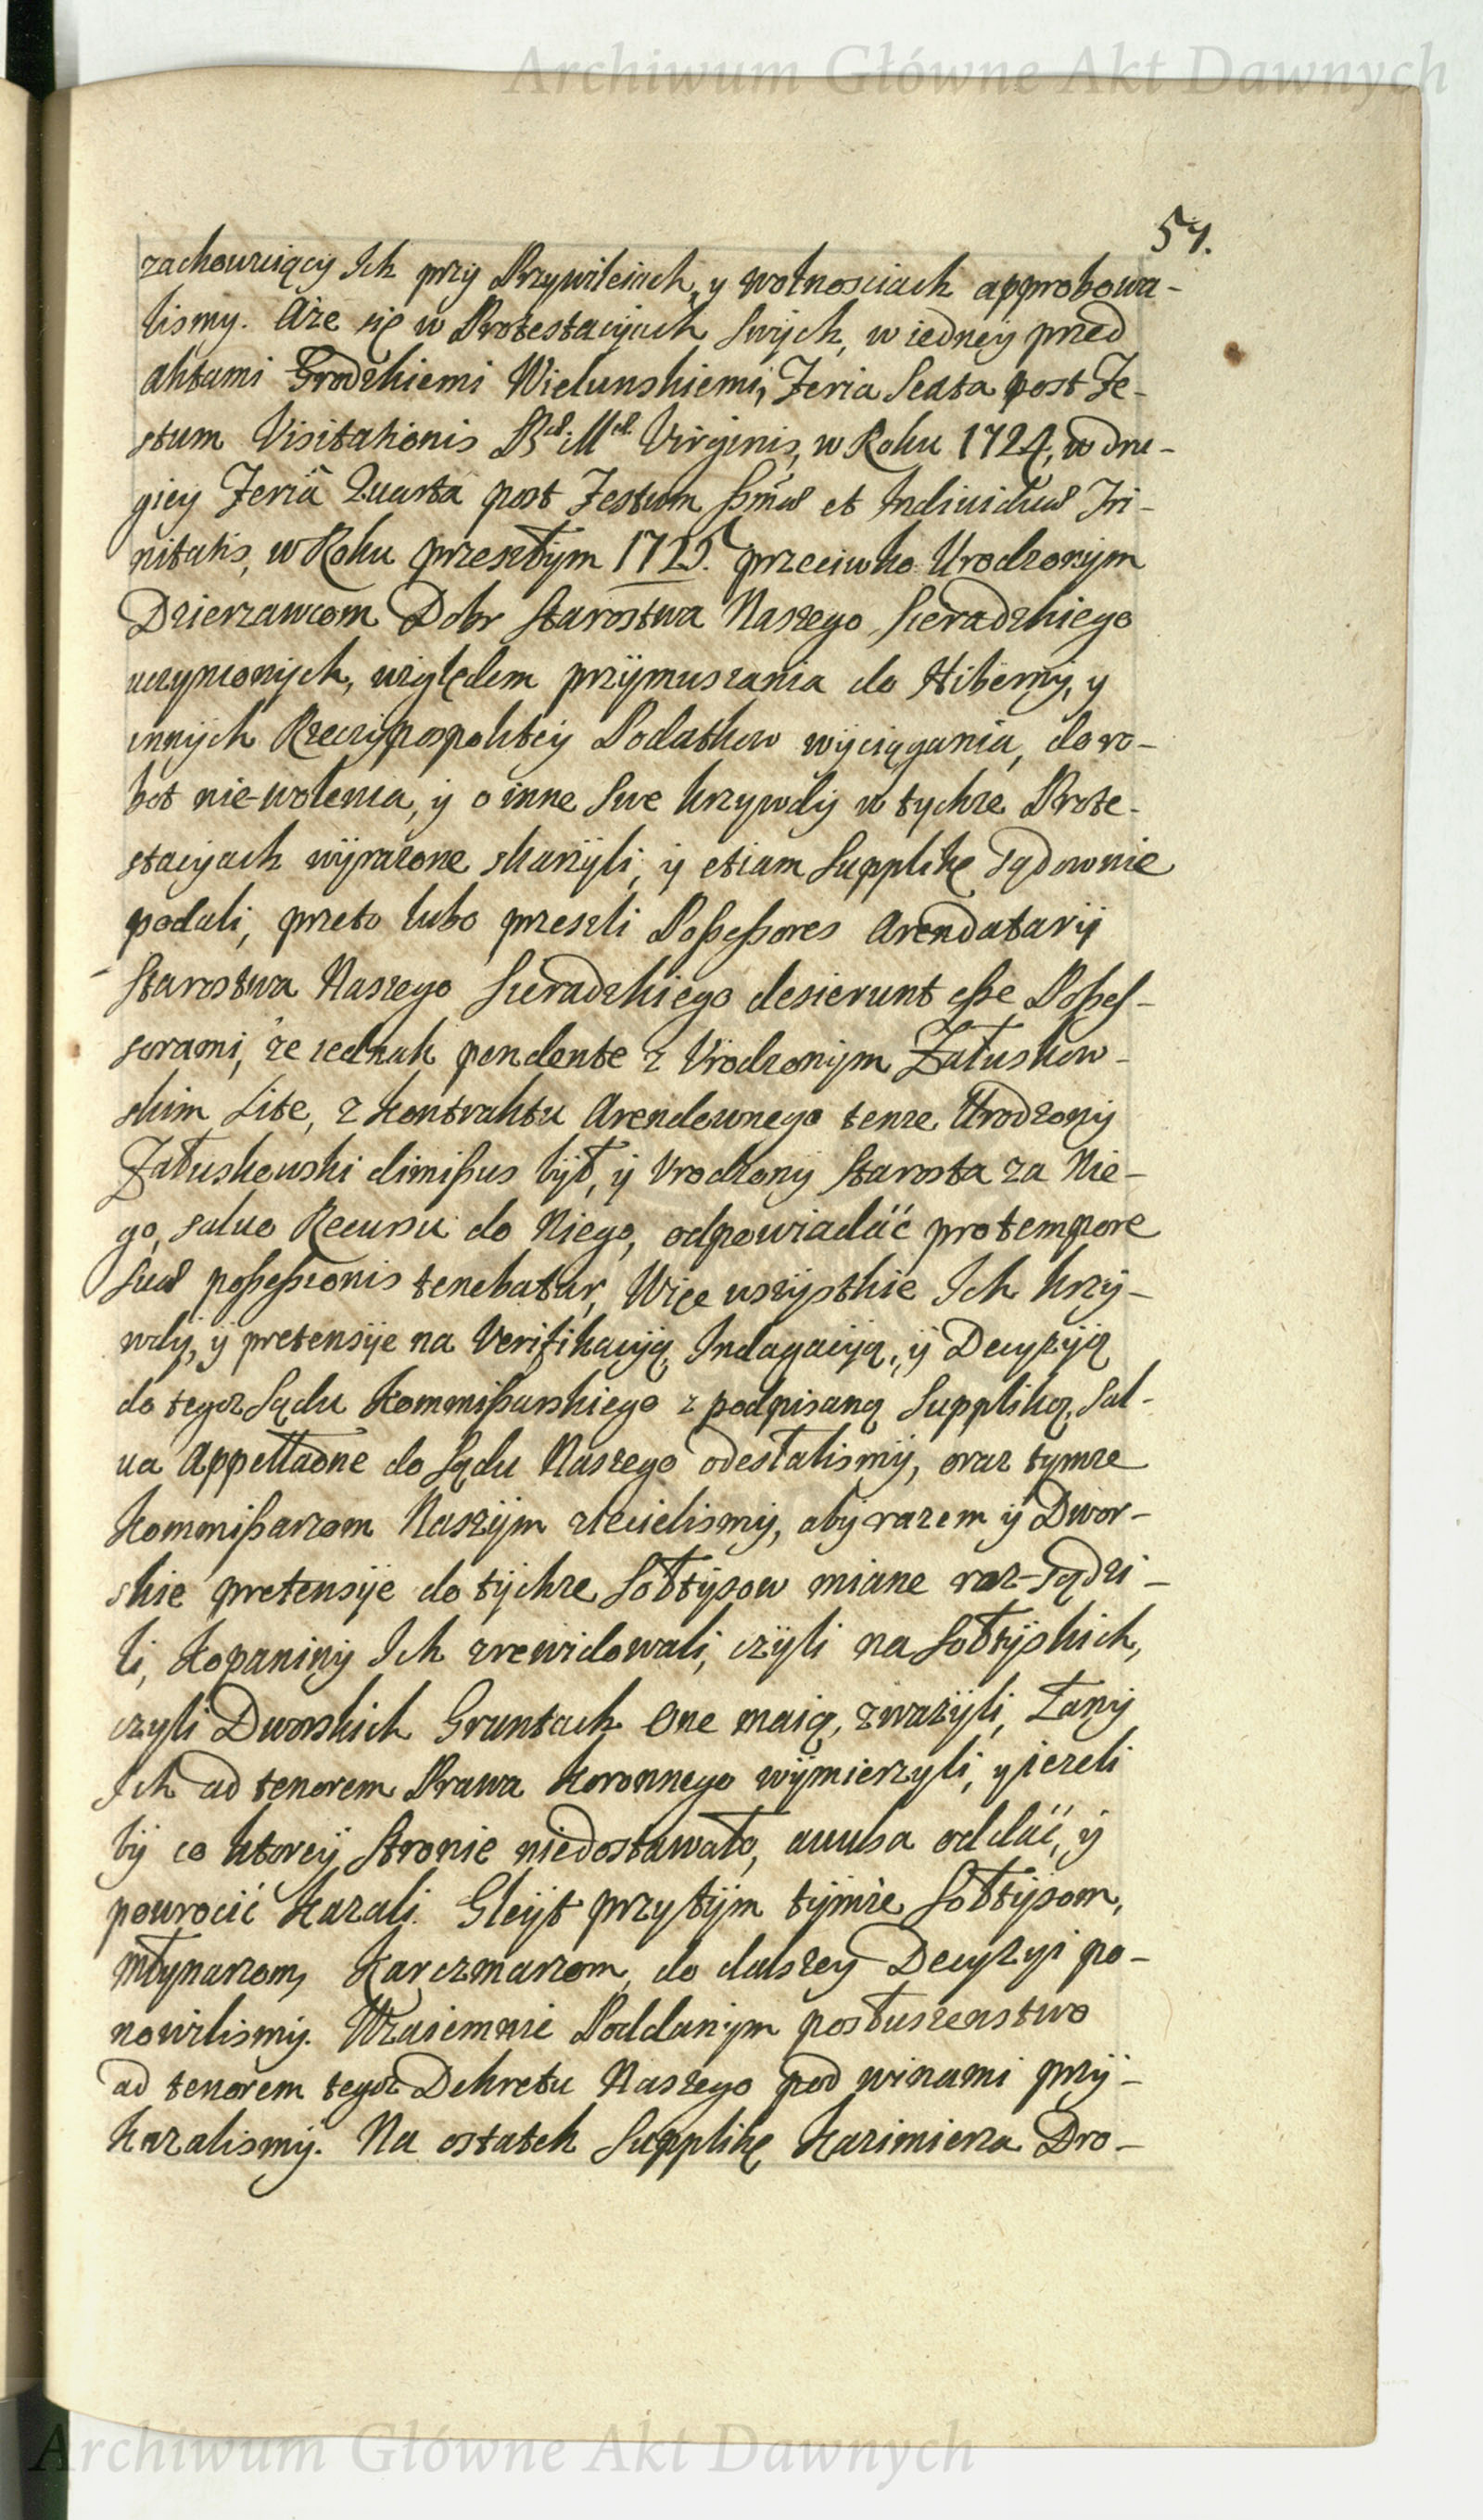 Archiwum Główne Akt Dawnych
57.
zachowuiący Ich przy Przywileiach, y wolnosciach approbowa-
lismy. Aże się w Protestacyach swych, w iedney przed
Aktami Grodzkiemi Wielunskiemi, Feria Sexta post Fe-
stum Visitationis Bæ: Mæ Virginis, w Roku 1724, w dru-
giey Feriâ Quartâ post Festum ssmæ et Individuæ Tri-
nitatis, w Roku przeszłym 1725. przeciwko Urodzonym
Dzierzawcom Dobr Starostwa Naszego Sieradzkiego
uczynionych, względem przymuszania do Hiberny, y
innych Rzeczypospolitey Podatkow wyciągania, do ro-
bot nie-wolenia, y o inne swe krzywdy w tychże Prote-
stacyach wyrażone skarzyli, y etiam Supplikę sądownie
podali, przeto lubo przeszli Possessores Arendatarij
Starostwa Naszego Sieradzkiego desierunt esse Posses-
sorami, że iednak pendente z Urodzonym Załuskow-
skim Lite, z Kontraktu Arendownego tenze Urodzony
Załuskowski dimissus był, y Urodzony Starosta za Nie-
go, saluo Recursu do Niego, odpowiadać pro tempore
suæ possessionis tenebatur, Więc wszystkie Ich krzy-
wdy, y pretensye na Verifikacyą, Indagacyą, y Decyzyą
do tegoz Sądu Kommissarskiego z podpisaną Suppliką, sal-
ua Appellaone do Sądu Naszego odesłalismy, oraz tymze
Kommissarzom Naszym zlecielismy, aby razem y Dwor-
skie pretensye do tychze Sołtysow miane roz-sądzi-
li, Kopaniny Ich zrewidowali, czyli na Sołtyskich,
czyli Dworskich Gruntach One maią, zwazyli, Łany
Ich ad tenorem Prawa Koronnego wymierzyli, y iezeli
by co ktorey Stronie niedostawało, auulsa oddać, y
powrocić Kazali. Gleyt przytym tymże Sołtysom,
Młynarzom, Karczmarzom, do dalszey Decyzyi po-
nowilismy. Wzaiemnie Poddanym posłuszenstwo
ad tenorem tegoz Dekretu Naszego pod winami przy-
kazalismy. Na ostatek Supplikę Kazimierza Dro-
Archiwum Główne Akt Dawnych